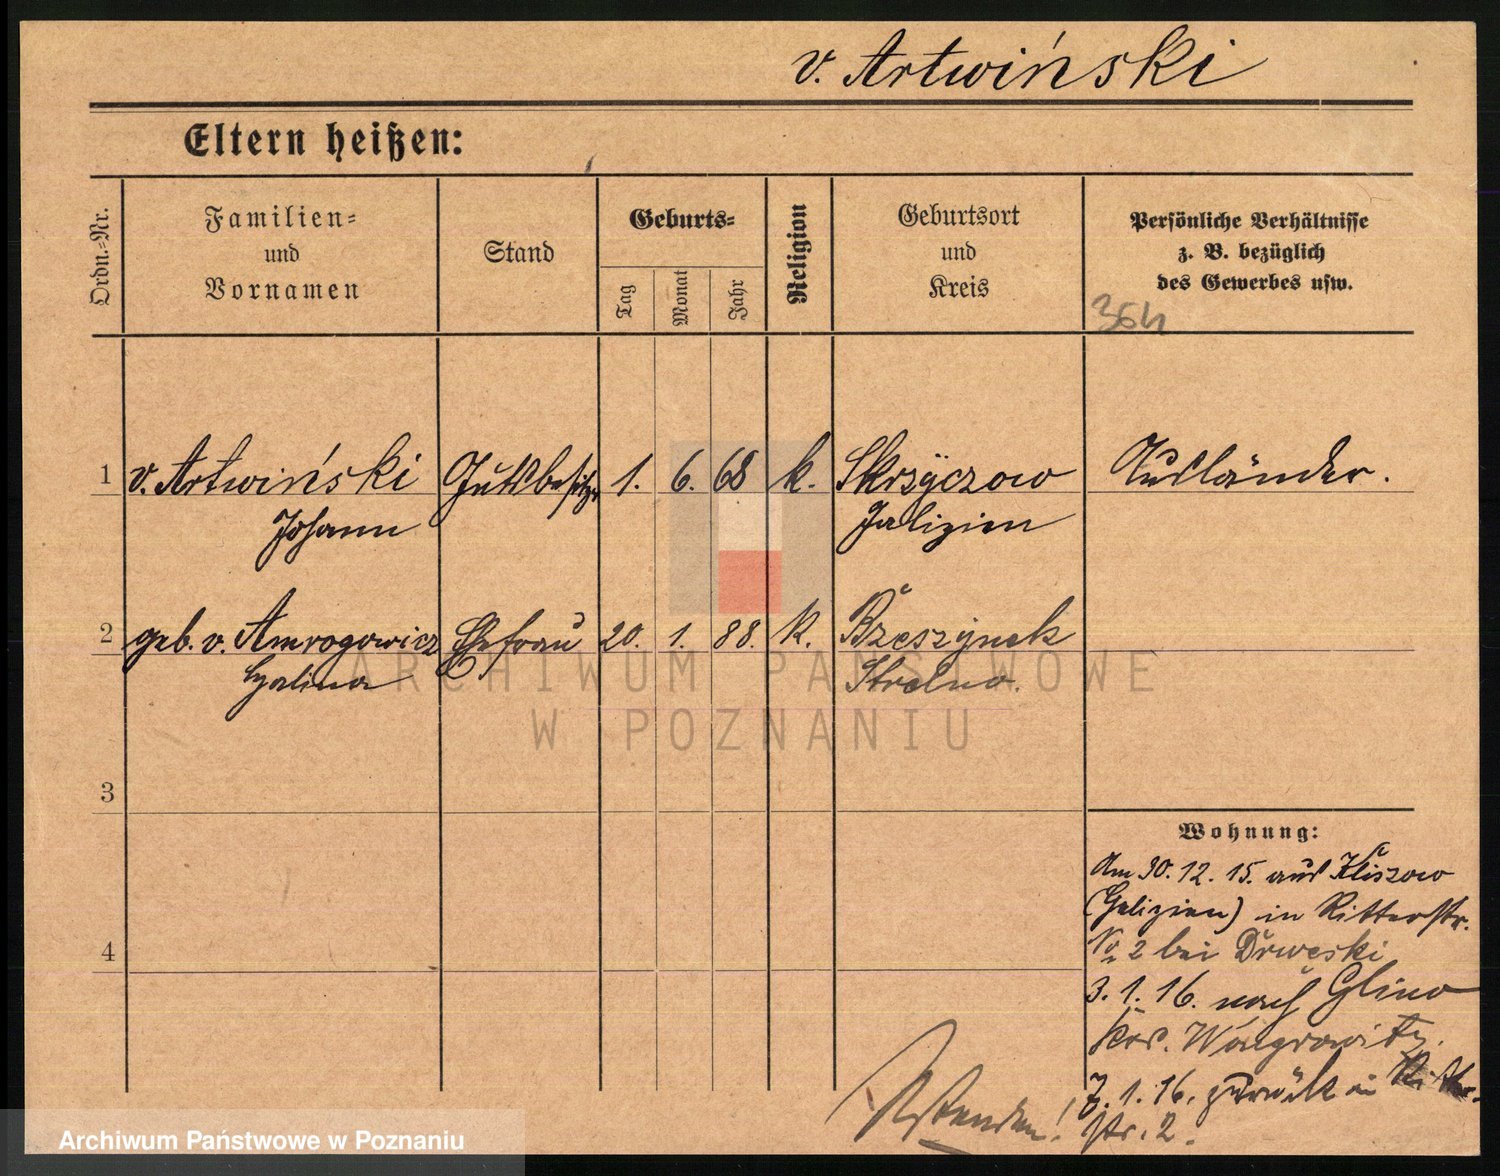 v. Artwiński
Eltern heißen:
Ordn.-Nr.
Familien-
und
Vornamen
Stand
Geburts-
Tag
Monat
Jahr
Religion
Geburtsort
und
Kreis
Persönliche Verhältnisse
z. B. bezüglich
des Gewerbes usw.
364
1 v. Artwiński Gutsbesitzer 1. 6. 68 k. Skrzyczow Ausländer.
Johann Galizien
2 geb. v. Amrogowicz Ehefrau 20. 1. 88. k. Bzeszynek
Halina Strelno.
3
4
Wohnung:
Am 30.12.15. aus Kliszow
(Galizien) in Ritterstr.
No 2 bei Drweski
3.1.16. nach Glino
Krs. Wongrowitz.
7.1.16. zurück in Ritter-
str. 2.
ARCHIWUM PAŃSTWOWE
W POZNANIU
Archiwum Państwowe w Poznaniu